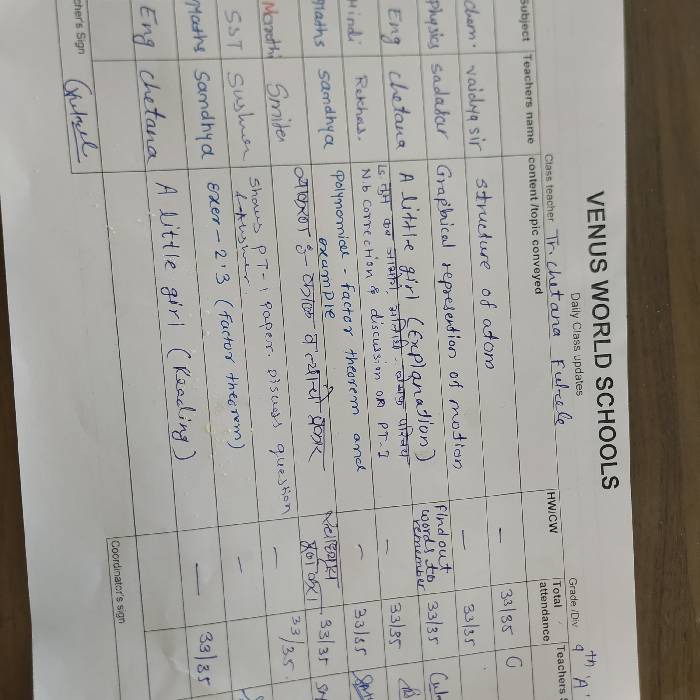 VENUS WORLD SCHOOLS
Daily Class updates
Class teacher Tr. chetana Fulzele Grade /Div 9th 'A'
Subject Teachers name content /topic conveyed HW/CW Total attendance Teachers
chem. vaidya sir structure of atom — 33/35
physics sadatar Graphical represention of motion — 33/35
Eng chetana A little girl (Explanation) Find out words to remember 33/35
Hindi Rekha. N.b correction & discussion on PT-1 — 33/35
Maths sandhya polynomial - factor theorem and example — 33/35
Marathi Smita 33/35
SST Sushma Shows PT-1 paper. Discuss question & Answer. — 33/35.
Maths Sandhya exer - 2.3 (factor theorem) —
Eng Chetana A little girl (Reading) — 33/35
cher's Sign Coordinator's sign